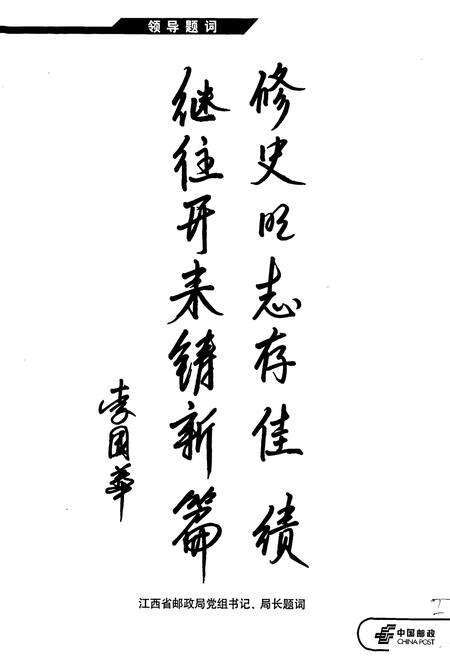 领导题词
修史明志存佳绩
继往开来铸新篇
李国华
江西省邮政局党组书记、局长题词
中国邮政
CHINA POST